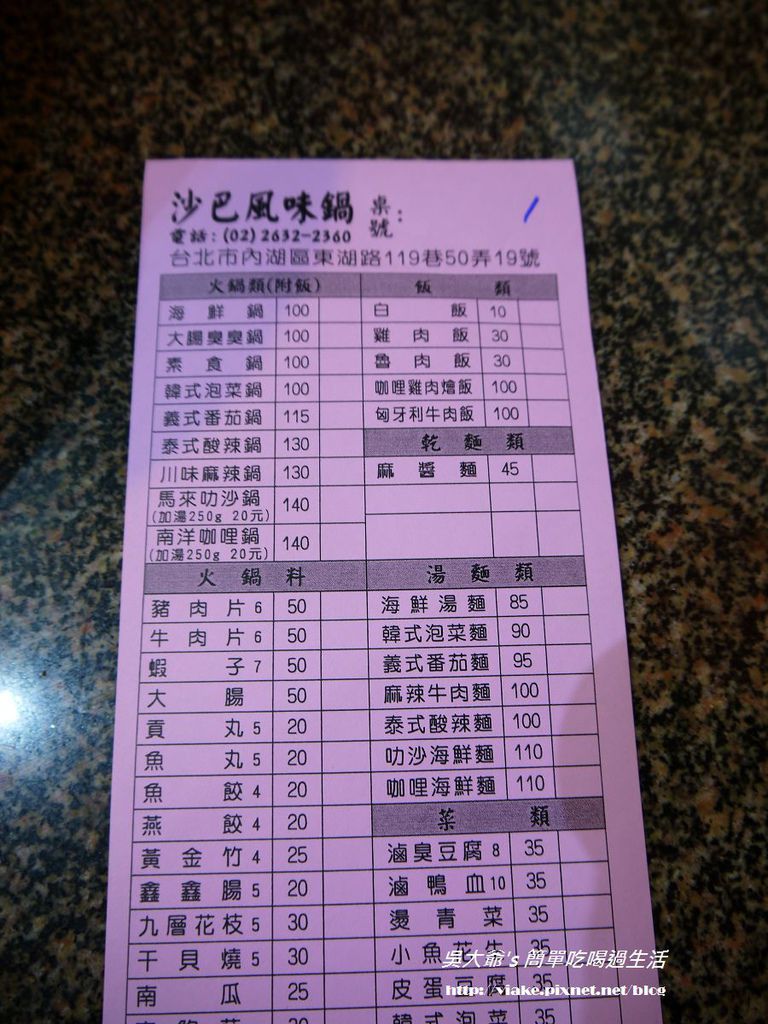 沙巴風味鍋 桌號：
電話：(02) 2632-2360
台北市內湖區東湖路119巷50弄19號
火鍋類(附飯)
海鮮鍋 100
大腸臭臭鍋 100
素食鍋 100
韓式泡菜鍋 100
義式番茄鍋 115
泰式酸辣鍋 130
川味麻辣鍋 130
馬來叻沙鍋 140
(加湯250g 20元)
南洋咖哩鍋 140
(加湯250g 20元)
火鍋料
豬肉片 6 50
牛肉片 6 50
蝦子 7 50
大腸 50
貢丸 5 20
魚丸 5 20
魚餃 4 20
燕餃 4 20
黃金竹 4 25
鑫鑫腸 5 20
九層花枝 5 30
干貝燒 5 30
南瓜 25
20
飯類
白飯 10
雞肉飯 30
魯肉飯 30
咖哩雞肉燴飯 100
匈牙利牛肉飯 100
乾麵類
麻醬麵 45
湯麵類
海鮮湯麵 85
韓式泡菜麵 90
義式番茄麵 95
麻辣牛肉麵 100
泰式酸辣麵 100
叻沙海鮮麵 110
咖哩海鮮麵 110
菜類
滷臭豆腐 8 35
滷鴨血 10 35
燙青菜 35
小魚花生 35
皮蛋豆腐 35
韓式泡菜 35
吳大爺's 簡單吃喝過生活
http://viake.pixnet.net/blog